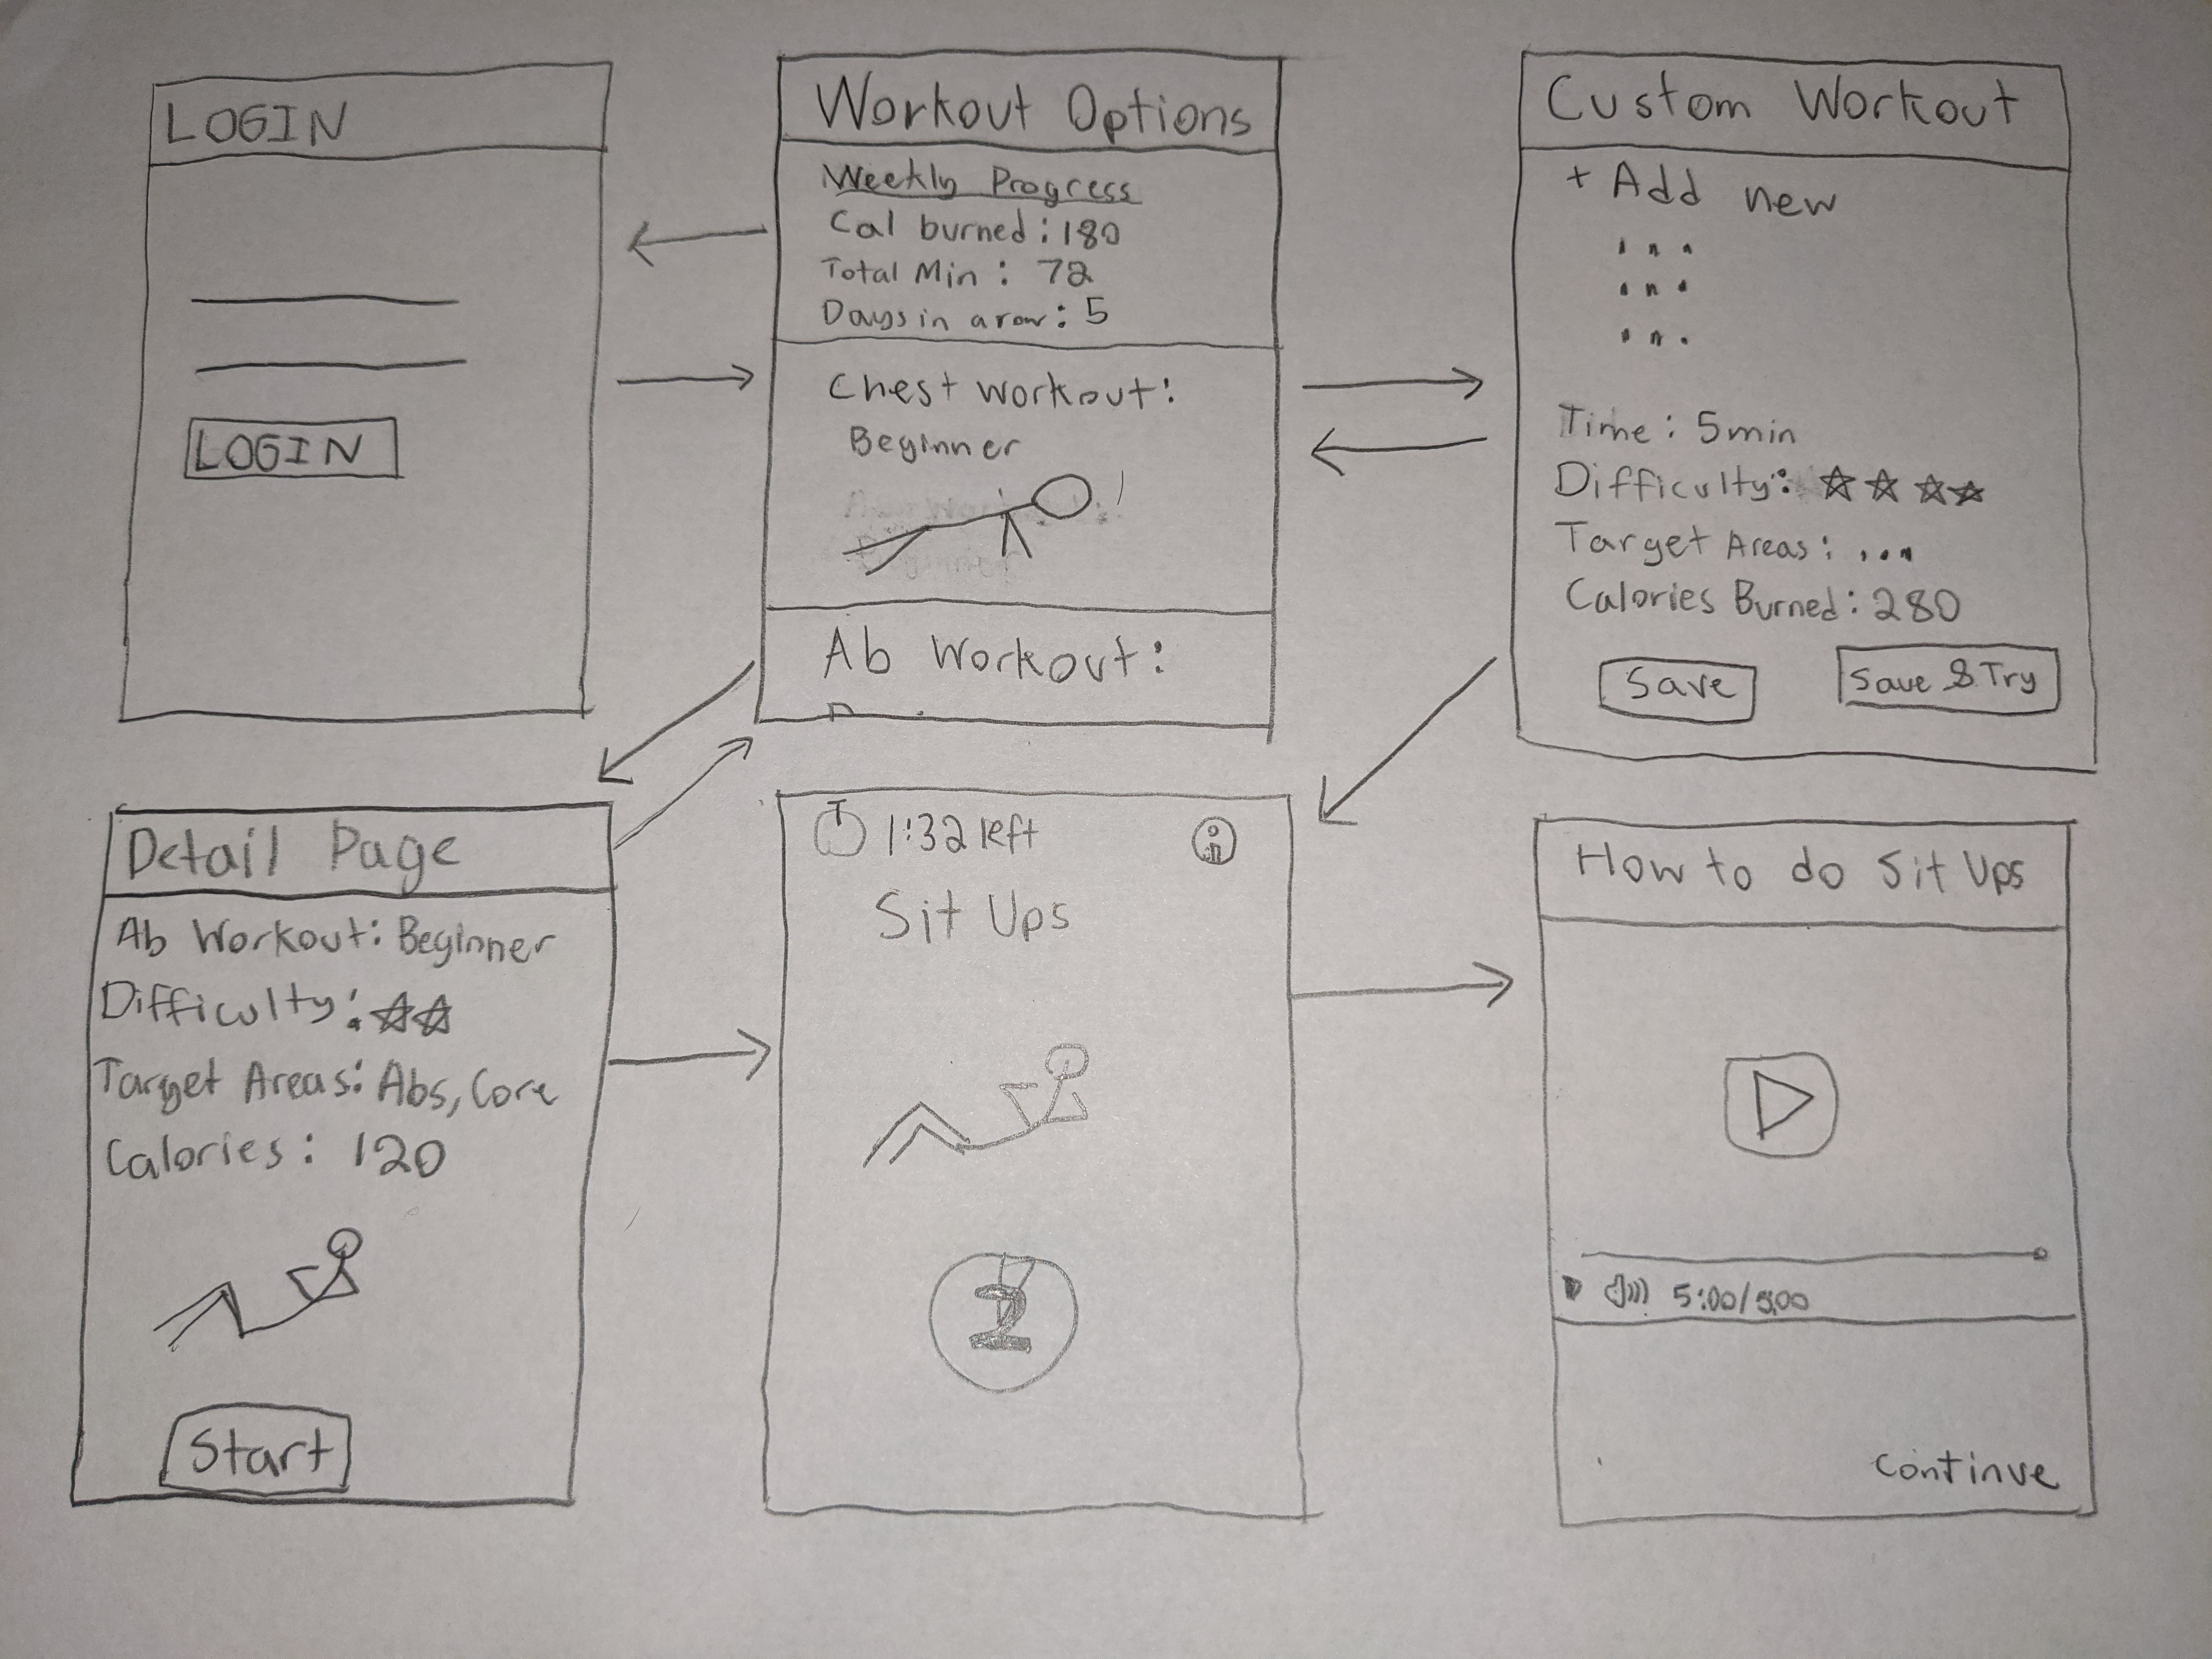 LOGIN
LOGIN
Workout Options
Weekly Progress
Cal burned: 180
Total Min: 72
Days in a row: 5
Chest Workout:
Beginner
Ab Workout:
Custom Workout
+ Add new
...
...
...
Time: 5min
Difficulty: ☆☆☆☆
Target Areas: ...
Calories Burned: 280
Save
Save & Try
Detail Page
Ab Workout: Beginner
Difficulty: ☆☆
Target Areas: Abs, Core
Calories: 120
Start
1:32 left
i
Sit Ups
2
How to do Sit Ups
5:00/5:00
Continue